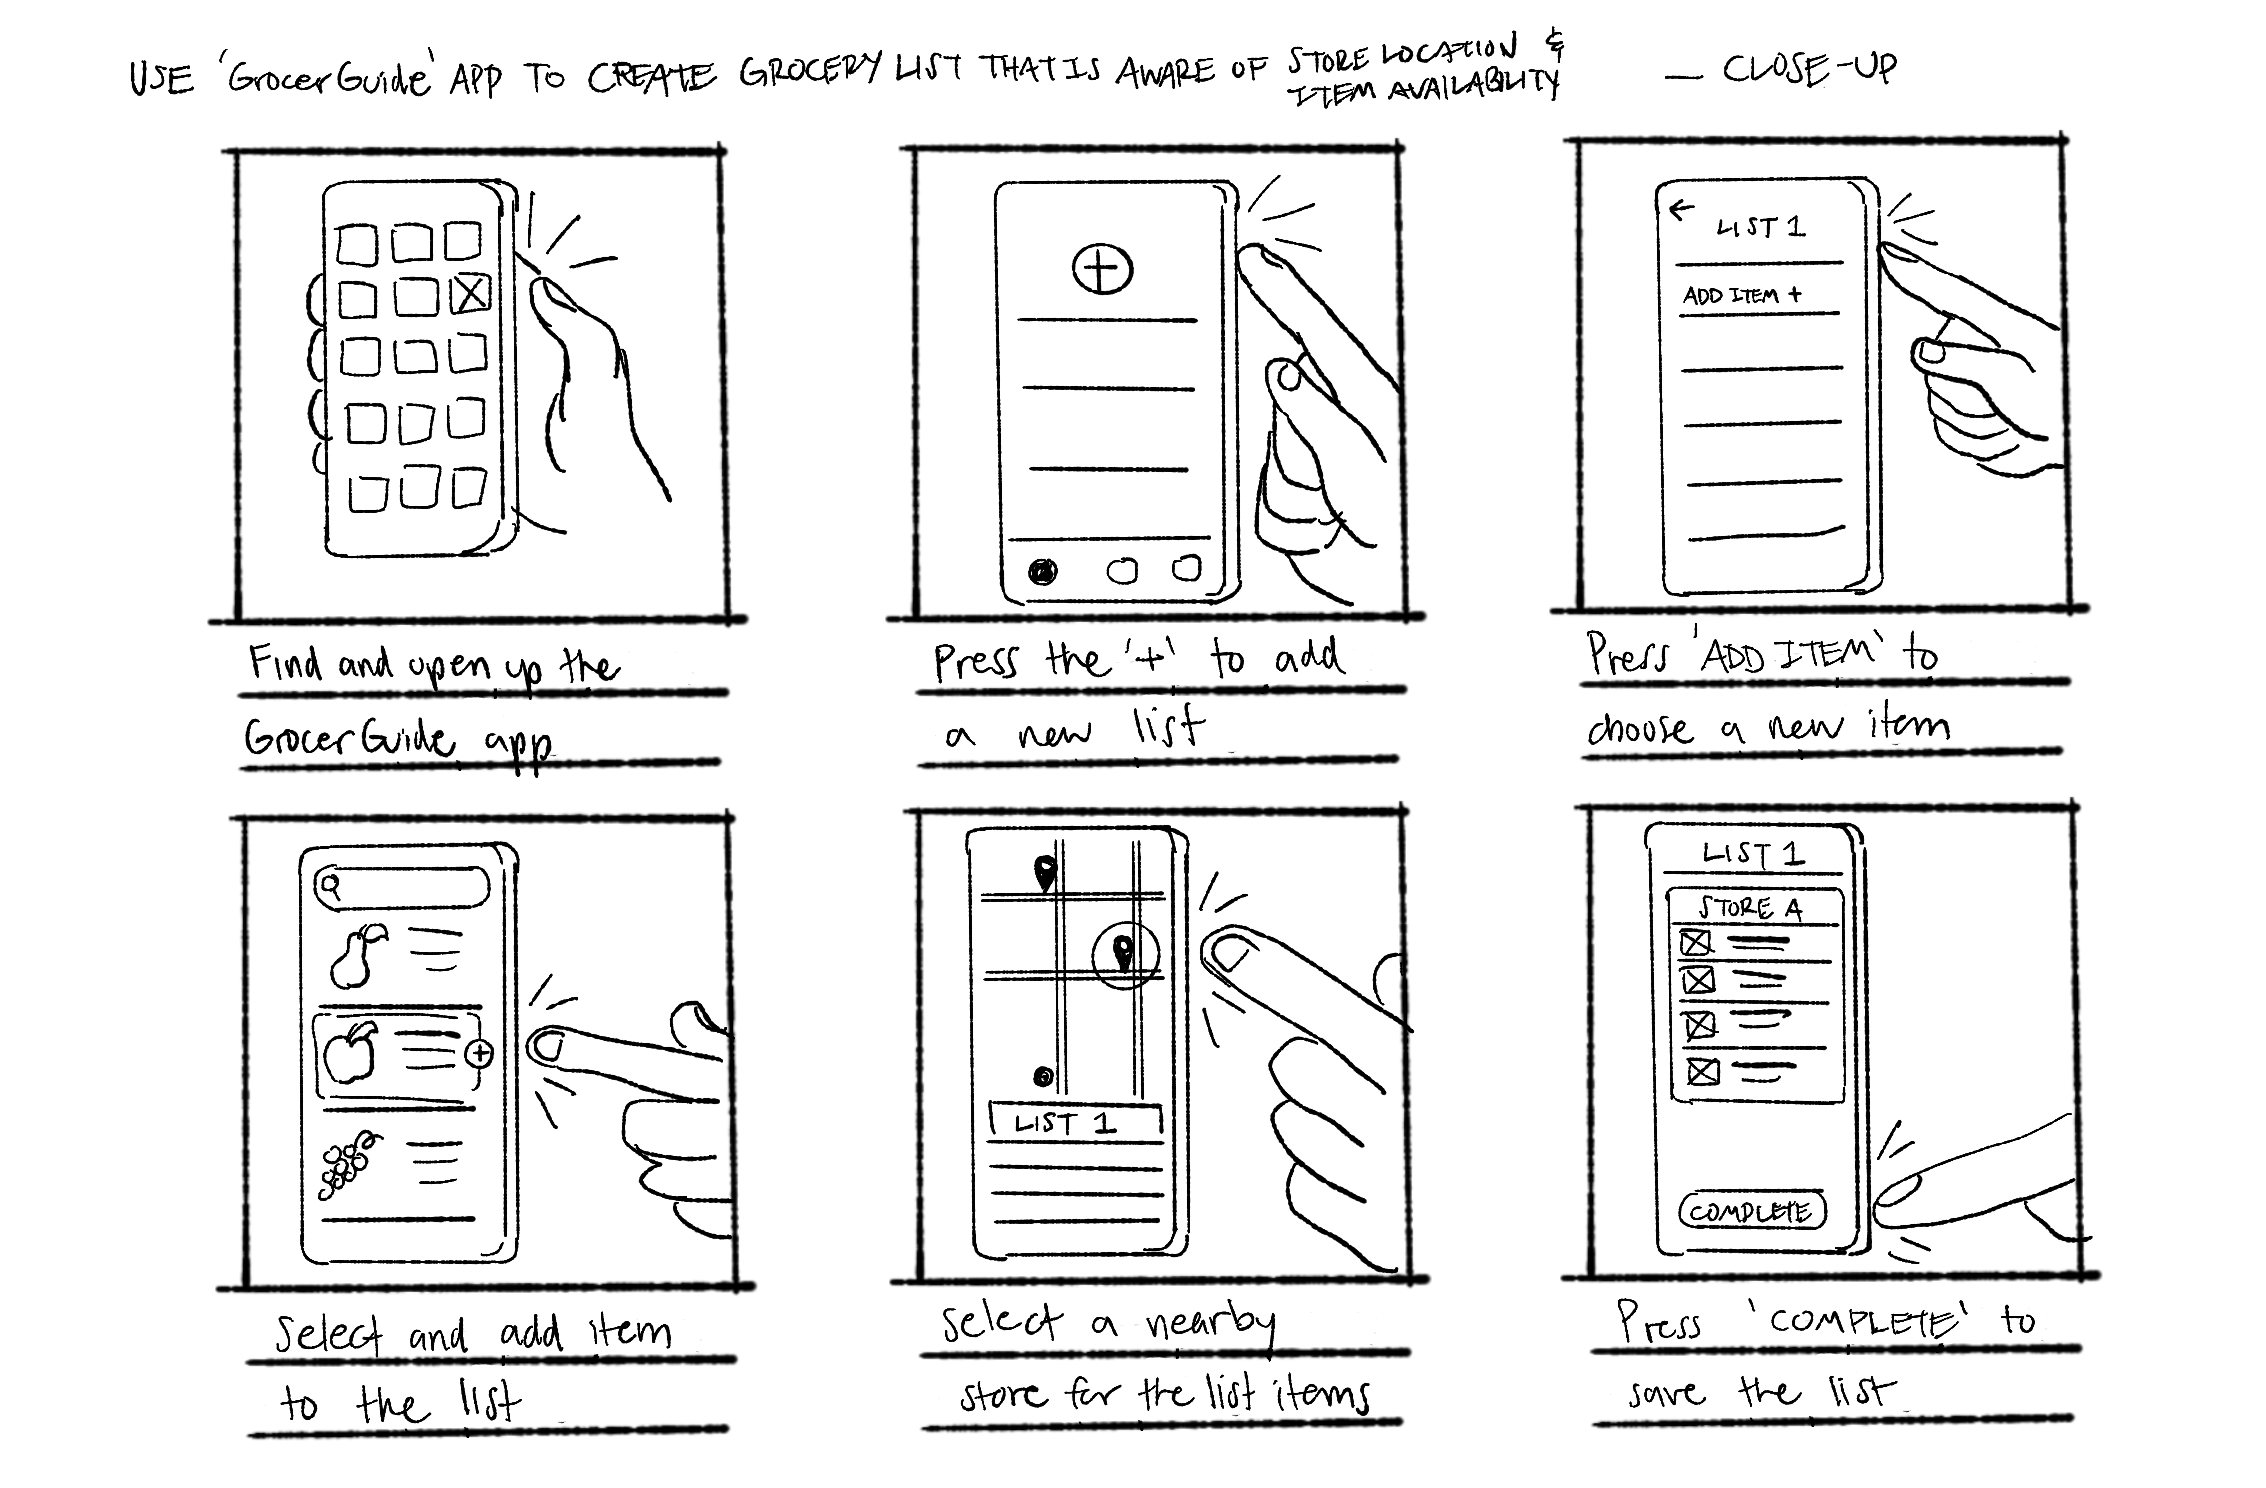 USE 'GrocerGuide' APP TO CREATE GROCERY LIST THAT IS AWARE OF STORE LOCATION & ITEM AVAILABILITY — CLOSE-UP
Find and open up the
GrocerGuide app
+
Press the '+' to add
a new list
←
LIST 1
ADD ITEM +
Press 'ADD ITEM' to
choose a new item
+
Select and add item
to the list
LIST 1
Select a nearby
store for the list items
LIST 1
STORE A
COMPLETE
Press 'COMPLETE' to
save the list